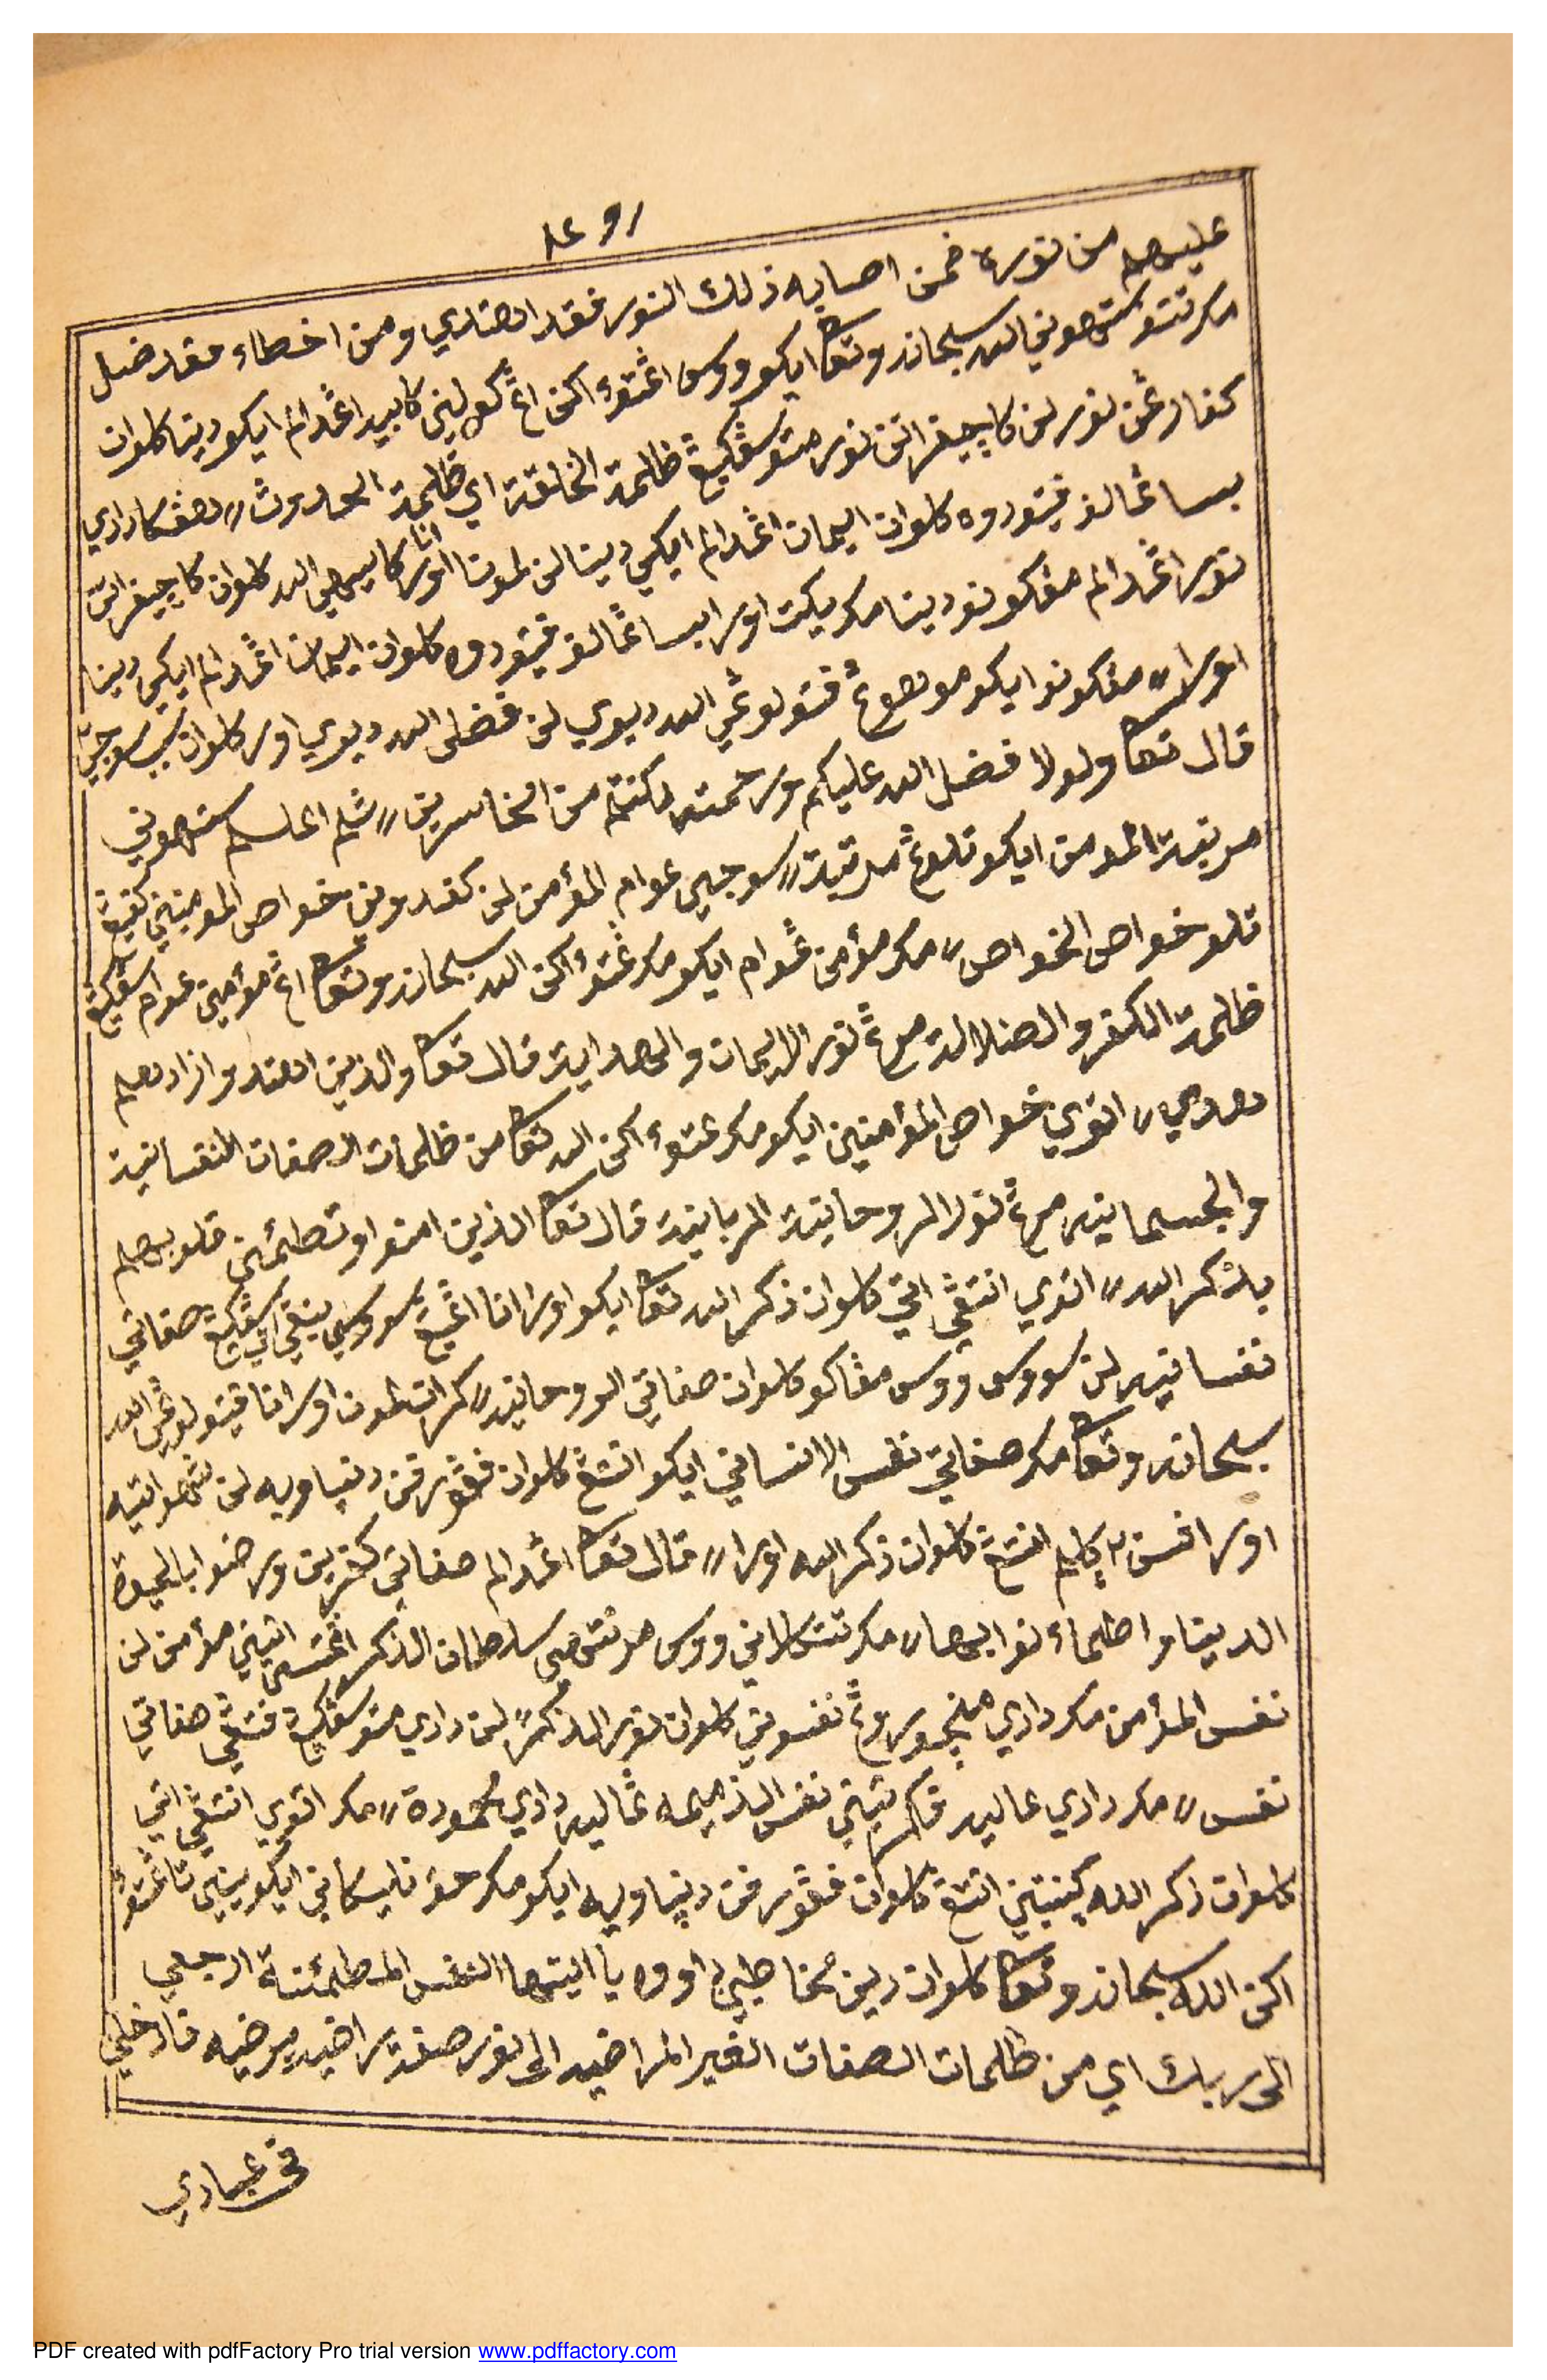 عليهم من نوره فمن اصابه ذلك النور فقد اهتدي ومن اخطاء فقد ضل
مكر تتو ستهوني الله سبحانه وتعالى ايكو ووس اڠتوء اكن اڠ كوليني كابيه اڠدالم ايكو دينا كلوان
كفارڠن نور لن كاچيفراتن نور متو سڠكيڠ ظلمة الخلقة اي ظلمة الحدوث // هڠكا دادي
بيسا ڠالف فيتودوه كلوان ايمان اڠدالم ايكي دينا لن لمونا انا اورا كاسيهي الله كلوان كاچيفراتن
نور اڠدالم مڠكونو دينا مكر يكت اورا بيسا ڠالف فيتودوه كلوان ايمان اڠدالم ايكي دينا
اورا // مڠكونو ايكو موهوڠ فتولوڠي الله ديوي لن فضلي الله ديوي اور كلوان سبب سوجي
قال تعالى ولولا فضل الله عليكم ورحمته لكنتم من الخاسرين // ثم اعلم ستهوني
مرتبة المومن ايكو تلوڠ مرتبة // سوجيي عوام المؤمن لن كفندوني خواص المومنين كفيڠ
تلو خواص الخواص // مكر مؤمن عوام ايكو مكر ڠتوء اكن الله سبحانه وتعالى اڠ مؤمين عوام سڠكيڠ
ظلمة الكفر والضلالة مرڠ نور الايمان والهداية قال تعالى والذين اهتدوا زادهم
هدي // اتوي خواص المؤمنين ايكو مكر ڠتوء اكن الله تعالى من ظلمات الصفات النفسانية
والجسمانية مرڠ نور الروحانية الربانية قال تعالى الذين امنوا وتطمئن قلوبهم
بذكر الله // اتوي انتڠي اتي كلوان ذكر الله تعالى ايكو اورا انا اڠيڠ سووسي بيڠي اتي سڠكيڠ صفاتي
نفسانيه لن سووس ووس مڠاكو كلوان صفاتي الروحانيه // كرانا لمون اورا انا فيتولوڠي الله
سبحانه وتعالى مكر صفاتي نفس الانساني ايكو انتڠ كلوان فڠورفن دنياويه لن شهواتيه
اورا فسن ٢ كالم انتڠ كلوان ذكر الله اورا // قال تعالى اڠدالم صفاتي كفرين ورضوا بالحيوة
الدينا واطماءنوا بها // مكر تتكلاني ووس مرنتهي سلطان الذكر اڠتسي اتيني مؤمن لن
نفس المؤمن مكر دادي منچوروڠ نفسوني كلوان نور الذكر لن دادي متو سڠكيڠ فتڠي صفاتي
نفس // مكر دادي عاليه فاكرتيني نفس الذميمه ڠاليه دادي محمودة // مكر اتوي انتڠي اتي
كلوان ذكر الله كينتيني انتڠ كلوان فڠورفن دنياويه ايكو مكر حؤ تليكاني ايكو بيني تا ڠتوء
اكن الله سبحانه وتعالى كلوان دين مخاطبي اووه يا ايتها النفس المطمئنة ارجعي
الى ربك اي من ظلمات الصفات الغير المراضيه الى نور صفة راضيه مرضيه فادخلي
في عبادي
PDF created with pdfFactory Pro trial version www.pdffactory.com